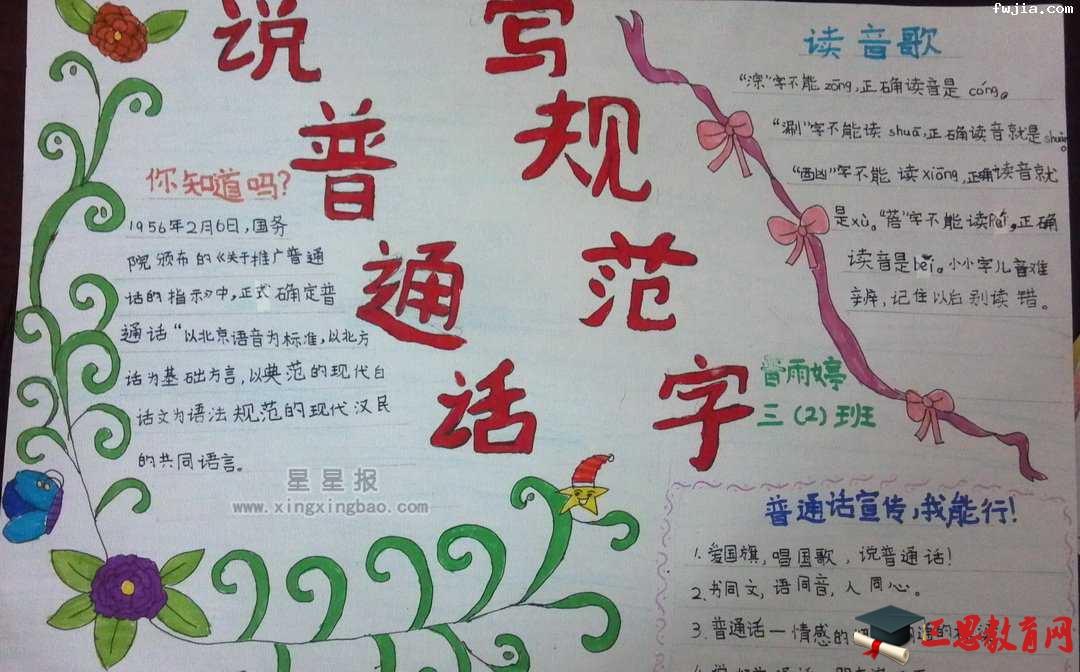 fwjia.com
说普通话
写规范字
你知道吗?
1956年2月6日,国务
院颁布的《关于推广普通
话的指示》中,正式确定普
通话“以北京语音为标准,以北方
话为基础方言,以典范的现代白
话文为语法规范的现代汉民
的共同语言。
星星报
www.xingxingbao.com
读音歌
“淙”字不能zōng,正确读音是cóng。
“涮”字不能读shuā,正确读音就是
“酗”字不能读xiōng,正确读音就
是xù。“蓓”字不能读péi,正确
读音是bèi。小小字儿音难
辨,记住以后别读错。
雨婷
三(2)班
普通话宣传,我能行!
1.爱国旗,唱国歌,说普通话!
2.书同文,语同音,人同心。
3.普通话—情感的
工思教育网